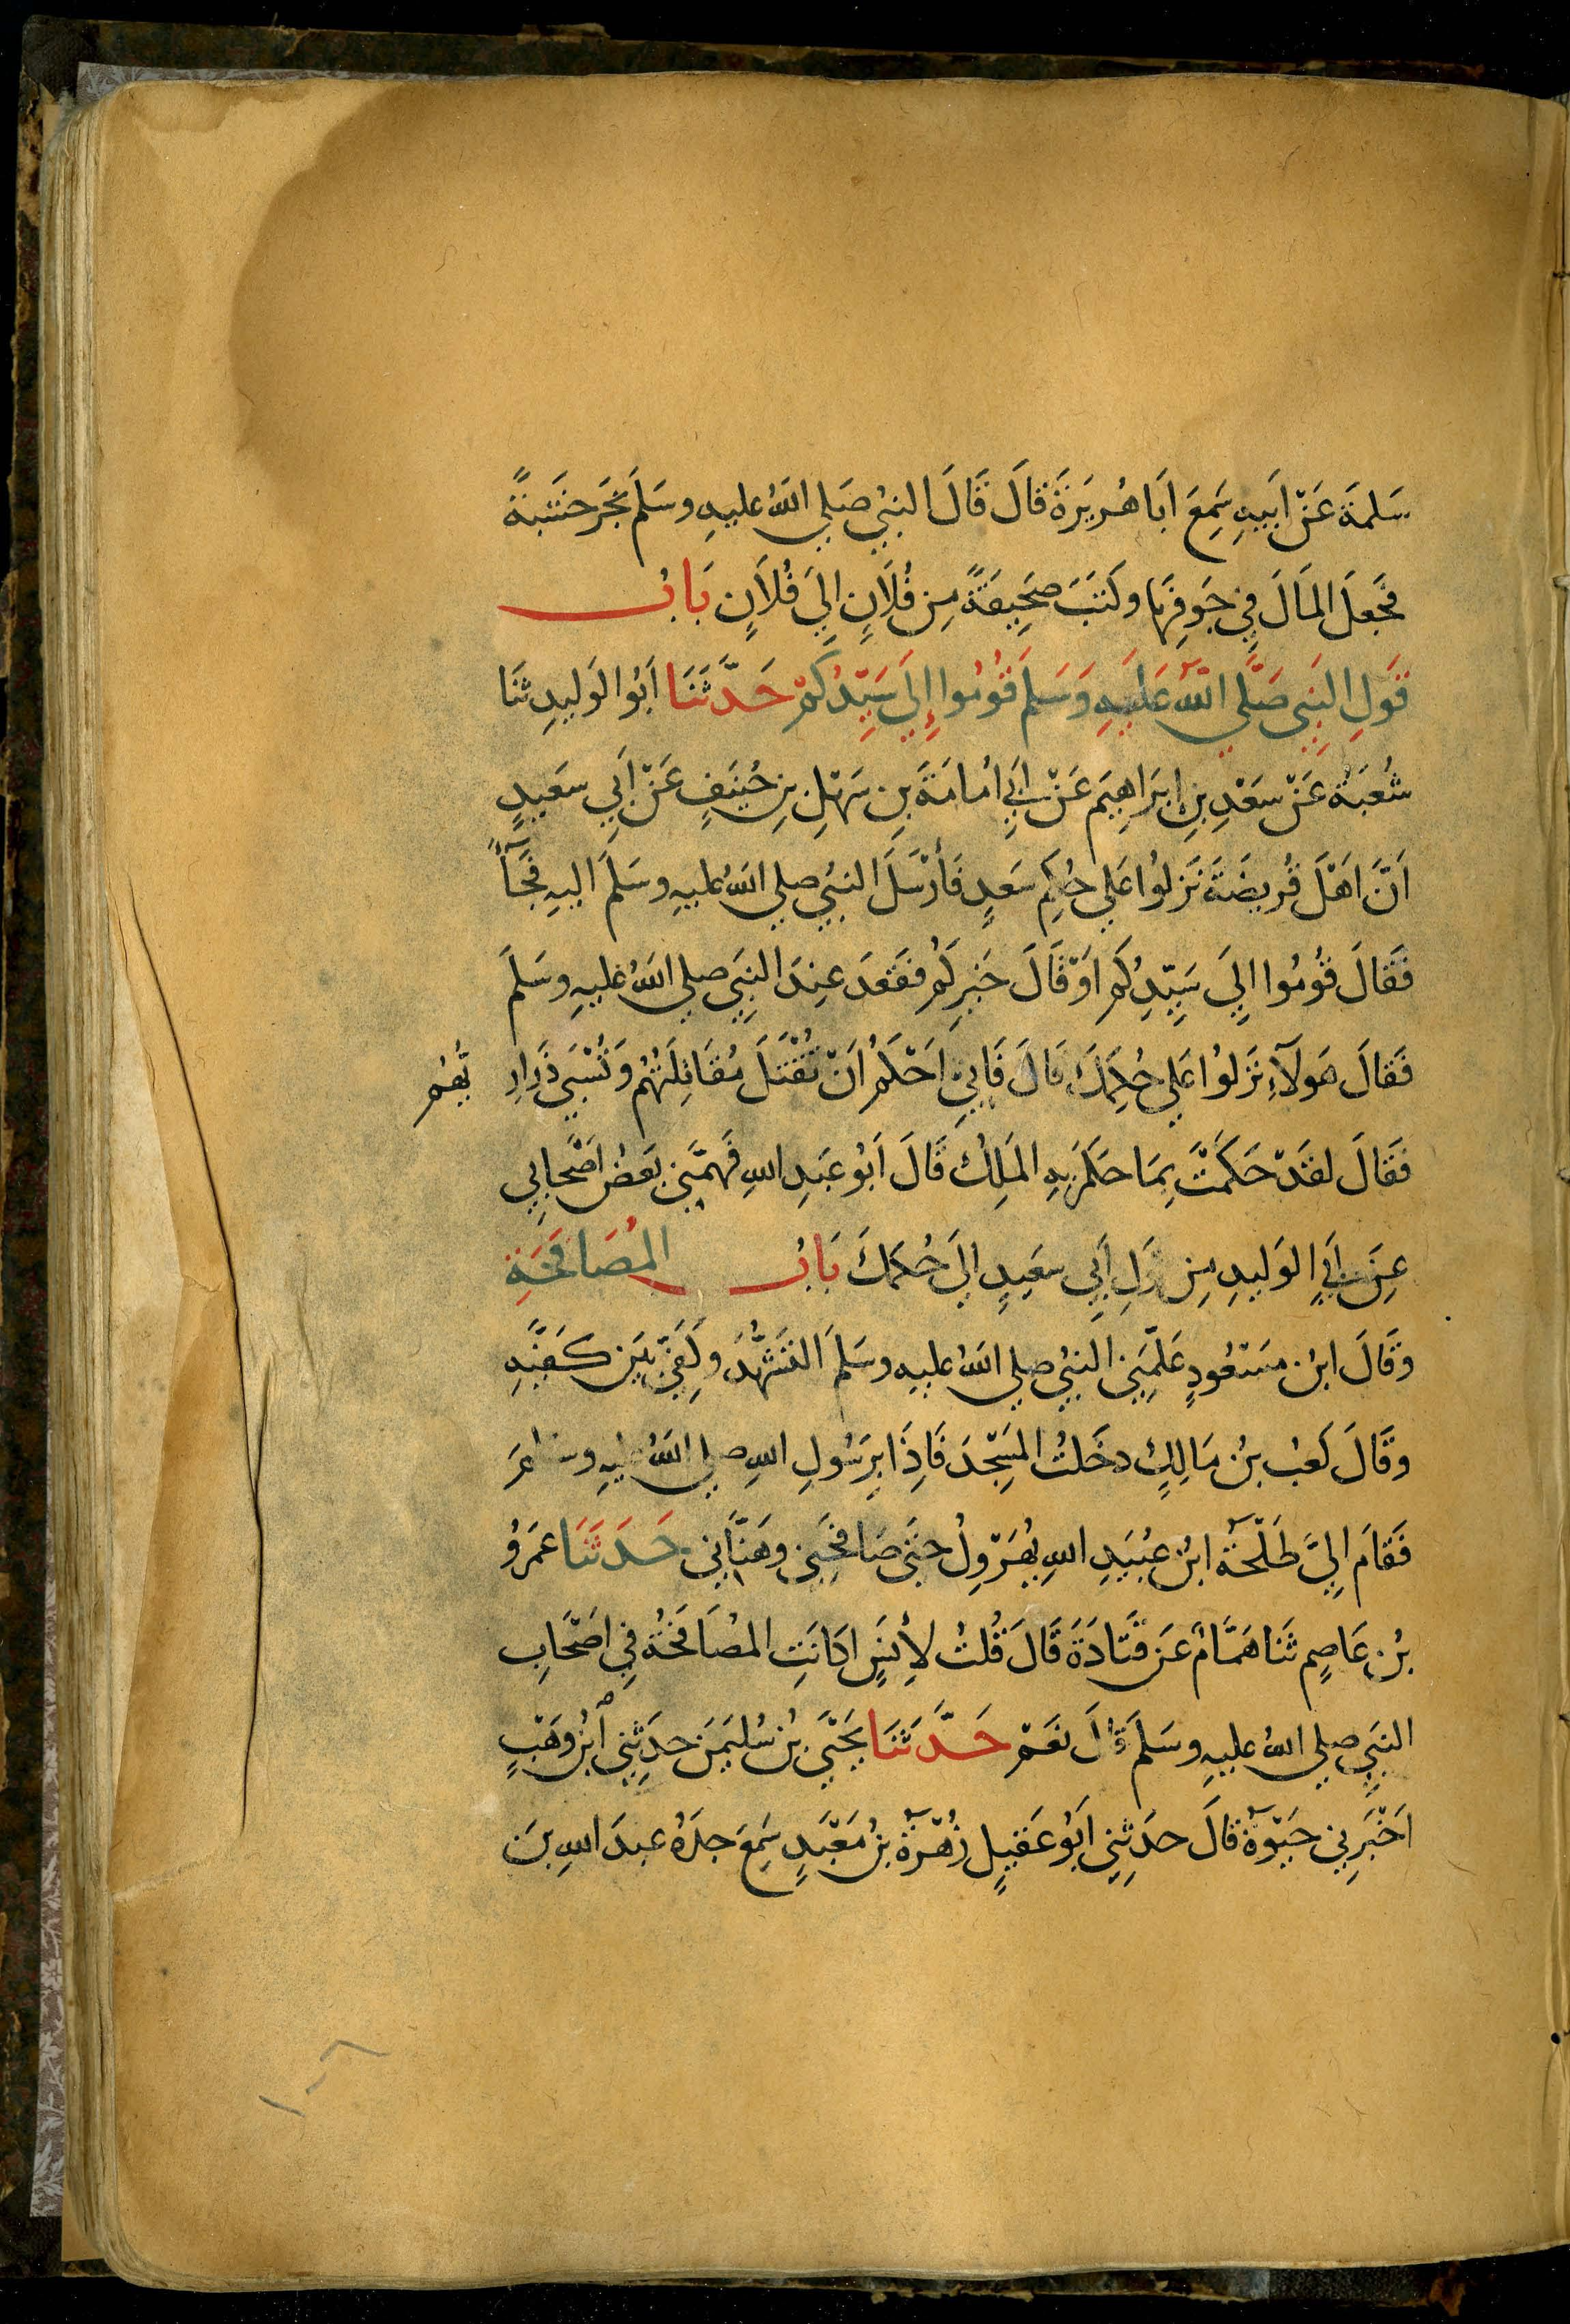 سَلمَةَ عَنْ اَبيهِ سَمِعَ اَبَا هُريَرَةَ قَالَ قَالَ النبيُ صَلي اللهُ عليهِ وسَلمَ نَجَرَ خشَبةً
فجَعلَ المَالَ فِي جَوفِهَا وكَتبَ صَحِيفَةً مِن فُلَانٍ اِلَي فُلاَنٍ بَابُ
قَولِ النَبِي صَلَّي اللهُ عَليَهِ وَسَلمَ قُومُوا إِلَي سَيِّدِكُمْ حَدَّثَنَا اَبُوا الوَليدِ ثنَا
شُعبَةُ عَنْ سَعْدِ بنِ اِبرَاهِيمَ عَنْ اَبِي اُمامَةَ بنِ سَهلِ بنِ حُنيَفٍ عَنْ اَبي سَعيدٍ
اَنَّ اَهْلَ قُريضَةَ نَزلُوا عَلي حُكِم سَعدٍ فَأرْسَلَ النبيُ صلي اللهُ عليهِ وسَلمَ اليهِ فجَآءَ
فَقَالَ قُومُوا اِلَي سَيِّدِكُم اَوْ قَالَ خَيرِكُمْ فَقَعدَ عِندَ النبَيِ صلي اللهُ عليهِ وسَلمَ
فَقَالَ هَولَآءِ نَزلُوا عَلي حُكمِكَ قالَ فَاِنيِ اَحْكُمُ اَنْ تُقْتَلَ مُقَاتِلَتُهُمْ وَتُسْبَي ذَرَارِيُّهُم
فَقَالَ لقَدْ حَكَمْتَ بِمَا حكَمَ بهِ المَلِكُ قَالَ اَبُو عَبَدِ اللهِ فَهمَّنِي بَعضُ اَصْحابِي
عِنَ اَبِي الوَليدِ مِن قَولِ اَبي سعَيدٍ اِلَي حُكمِكَ بَابُ المُصَافَحَةِ
وقَالَ ابنُ مسْعُودٍ عَلَّمِنَي النبيُ صلي اللهُ عليهِ وسَلمَ التشَهُّدَ وكَفِّي بَين كَفيَّهِ
وقَالَ كَعبُ بنُ مَالِكٍ دخَلتُ المَسجِدَ فَاِذَا برَسُولِ اللهِ صلي اللهُ عليهِ وسَلمَ
فَقَامَ اِلَيَّ طَلْحَةُ ابنُ عبُيَدِ اللهِ يُهَرْوِلُ حتَي صَافحَنَي وهَنَّاني حَدَثَنَا عمَرُو
بنُ عَاصِمٍ ثنَا هَمَّامٌ عَن قَتَادَةَ قَالَ قُلتُ لأِنَسٍ اكَانَتِ المُصَافحَةُ فِي اَصْحَابِ
النبَيِ صلي اللهُ عليهِ وسَلمَ قالَ نعَمْ حَدَّثَنَا يَحْيَي بنُ سُليَمنَ حدَثِني ابنُ وهَبٍ
اَخْبَرنِي حَيْوةُ قَالَ حدَثِني اَبُو عَقيلٍ زُهْرَةُ بنُ مَعْبَدٍ سَمِعَ جدَهُ عبدَ اللهِ بنَ